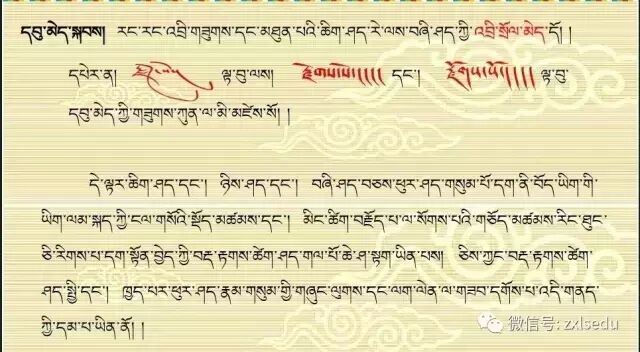 དབུ་མེད་སྐབས། རང་རང་འབྲི་གཟུགས་དང་མཐུན་པའི་ཆིག་ཤད་རེ་ལས་བཞི་ཤད་ཀྱི་འབྲི་སྲོལ་མེད་དོ། །
དཔེར་ན། ལྟ་བུ་ལས། རྫོགས་སོ།།།།། དང་། རྫོགས་སོ།།།། ལྟ་བུ་
དབུ་མེད་ཀྱི་གཟུགས་ཀུན་ལ་མི་མཛེས་སོ། །
དེ་ལྟར་ཆིག་ཤད་དང་། ཉིས་ཤད་དང་། བཞི་ཤད་བཅས་ཕུར་ཤད་གསུམ་པོ་དག་ནི་བོད་ཡིག་གི་
ཡིག་ལམ་སྐད་ཀྱི་ངལ་གསོའི་སྡོད་མཚམས་དང་། མིང་ཚིག་བརྗོད་པ་ལ་སོགས་པའི་གཅོད་མཚམས་རིང་ཐུང་
ཅི་རིགས་པ་དག་སྟོན་བྱེད་ཀྱི་བརྡ་རྟགས་ཚེག་ཤད་གལ་པོ་ཆེ་ཤ་སྟག་ཡིན་པས། ཅིས་ཀྱང་བརྡ་རྟགས་ཚེག་
ཤད་སྤྱི་དང་། ཁྱད་པར་ཕུར་ཤད་རྣམ་གསུམ་གྱི་གཞུང་ལུགས་དང་ལག་ལེན་ལ་གཟབ་དགོས་པ་འདི་གནད་
ཀྱི་དམ་པ་ཡིན་ནོ། །
微信号: zxlsedu